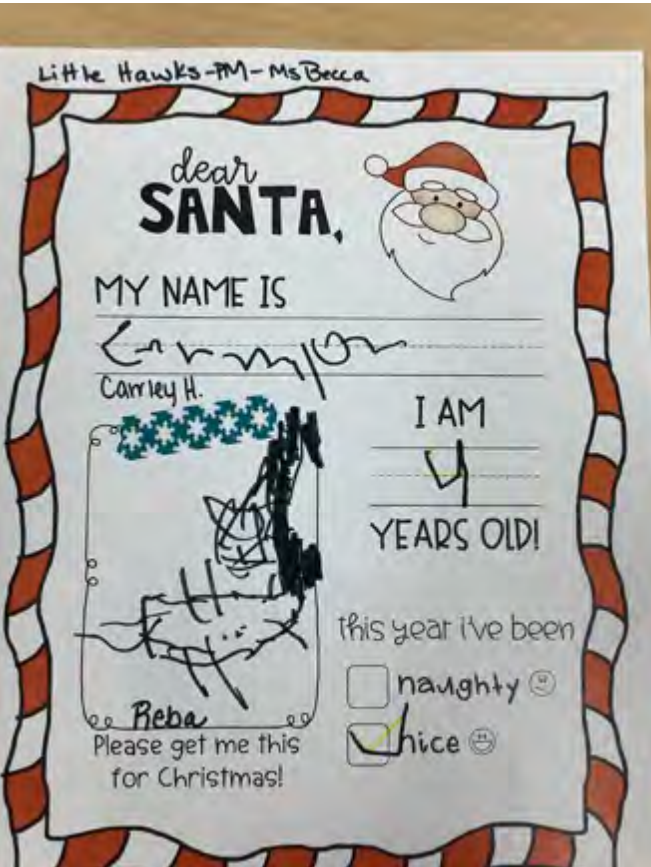 Little Hawks-PM-Ms Becca
dear
SANTA,
MY NAME IS
Camley H.
I AM
4
YEARS OLD!
this year i've been
naughty
nice
Reba
Please get me this
for Christmas!